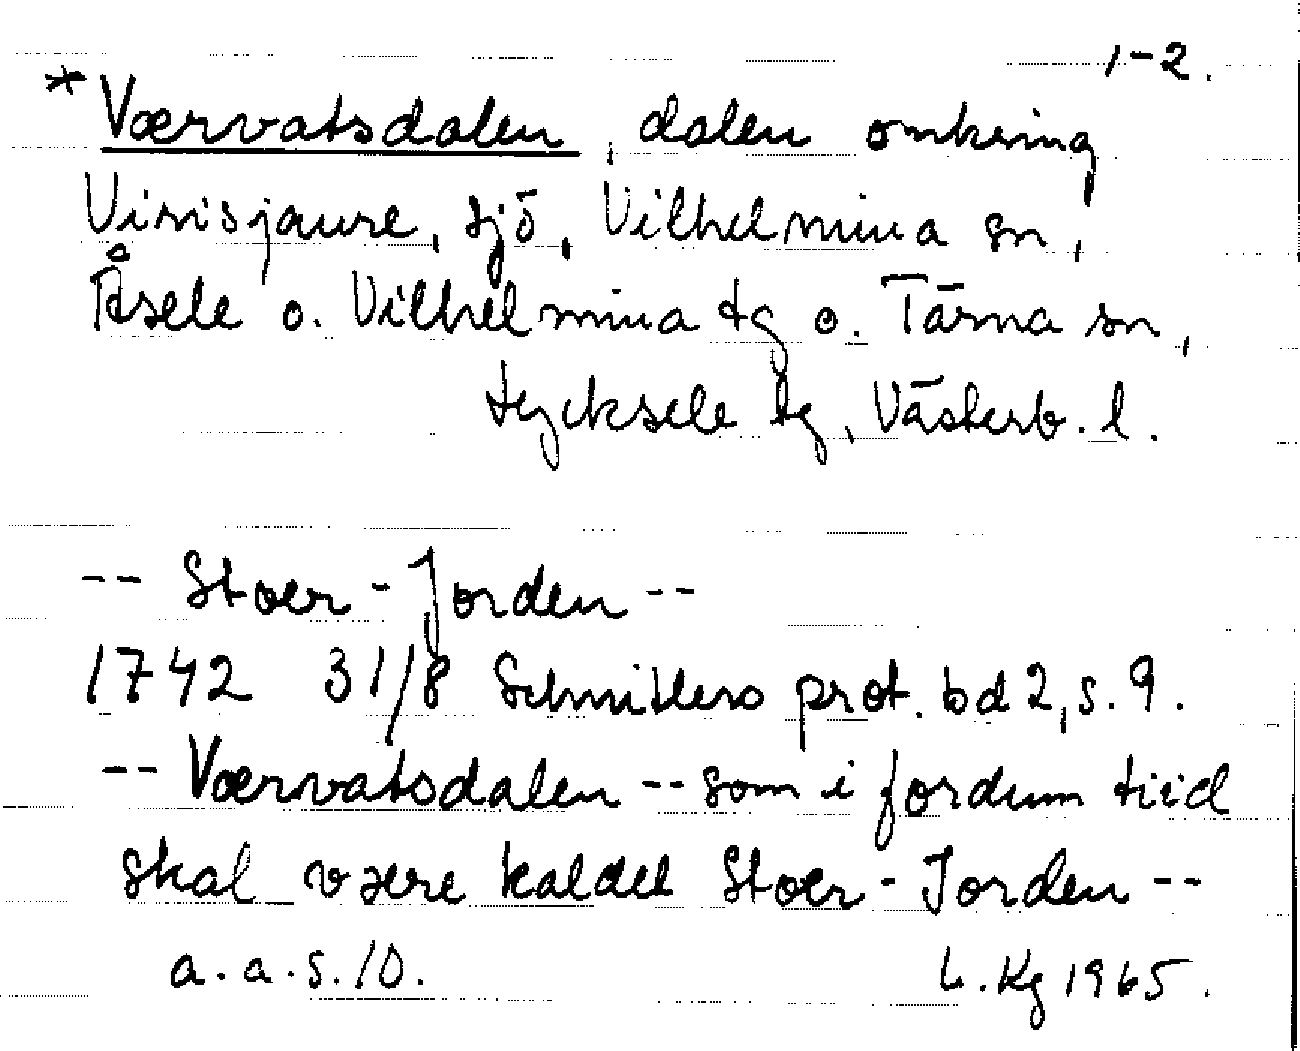 1-2.
*Værvatsdalen, dalen omkring
Virisjaure, sjö, Vilhelmina sn,
Åsele o. Vilhelmina tg o. Tärna sn,
Lycksele tg, Västerb. l.
-- Stoer-Jorden --
1742 31/8 Schnitlers prot. bd 2, s. 9.
-- Værvatsdalen -- som i fordum tiid
skal være kaldet Stoer-Jorden --
a.a.s. 10. L. Kg 1965.